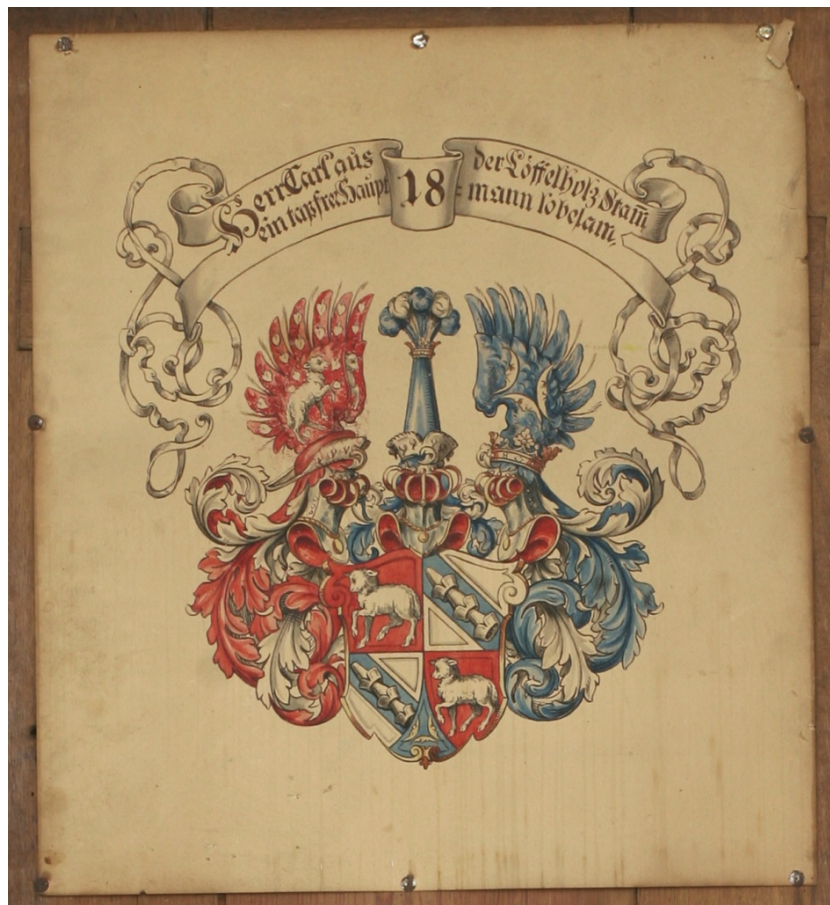 Herr Carl aus
ein tapfrer Haupt
18
der Löffelholz Stam̄
= mann lobesam,